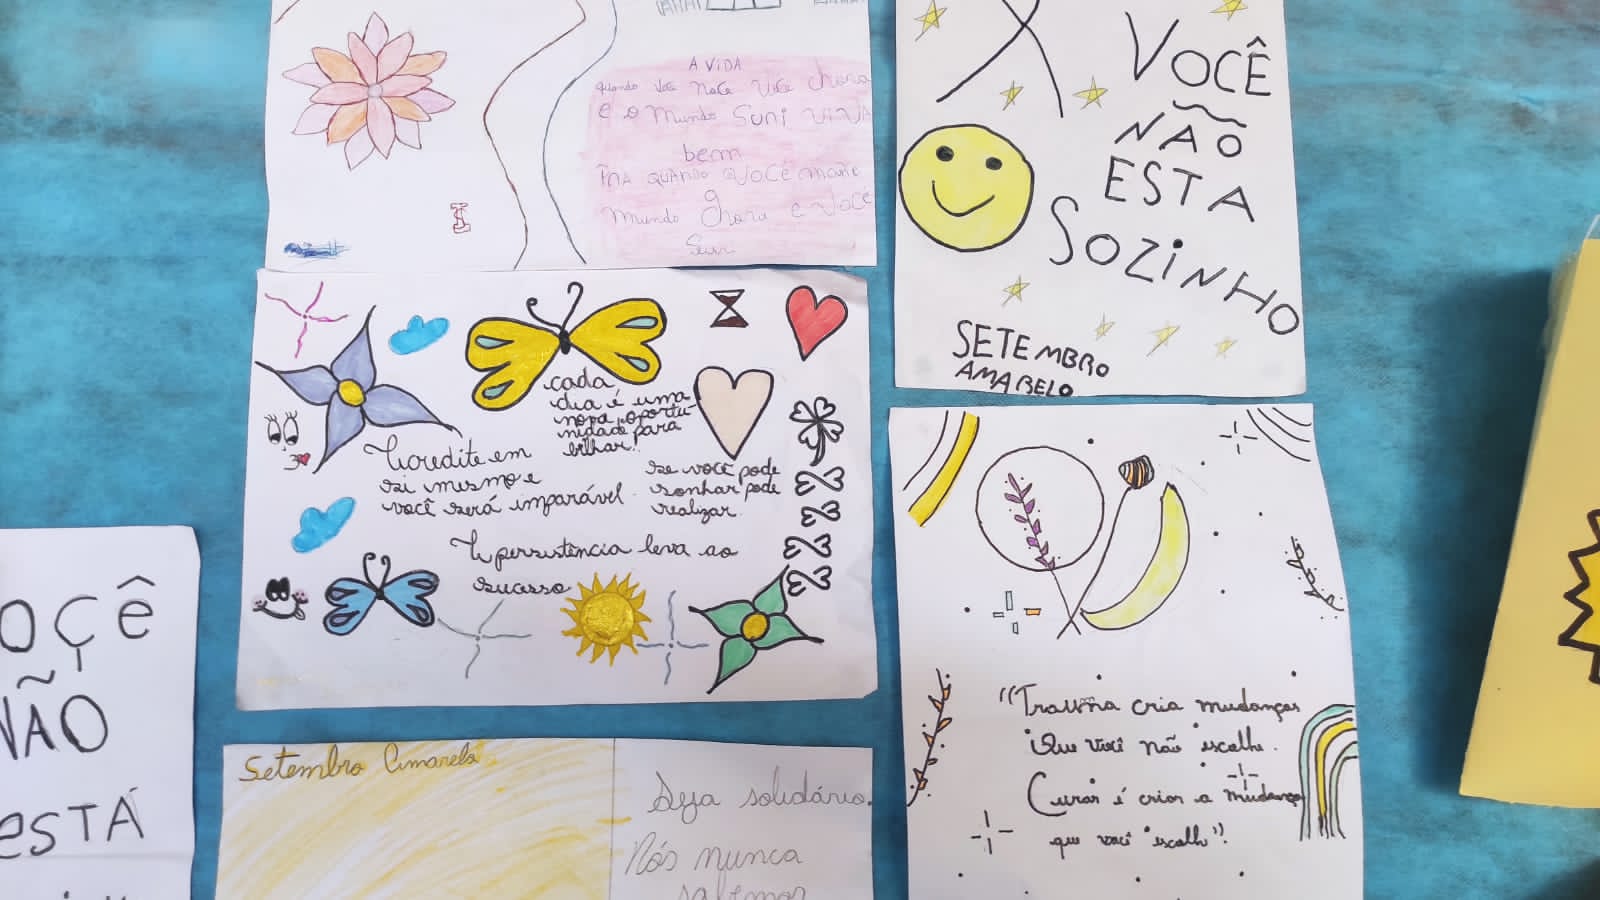 A VIDA
quando você nace você chora
e o mundo Suni viva
bem
quando você
mundo chora e você
VOCÊ
NÃO
ESTA
SOZINHO
SETEMBRO
AMARELO
cada
dia é uma
nova oportu-
nidade para
bilhar!
Acredite em
si mesmo e
você será imparável.
se você pode
sonhar pode
realizar.
A persistência leva ao
sucesso
"Trauma cria mudanças
Que você não escolhe.
Curar é criar a mudança
que você escolhe".
oçê
NÃO
ESTÁ
Setembro Amarelo
Seja solidário.
Nós nunca
sabemos